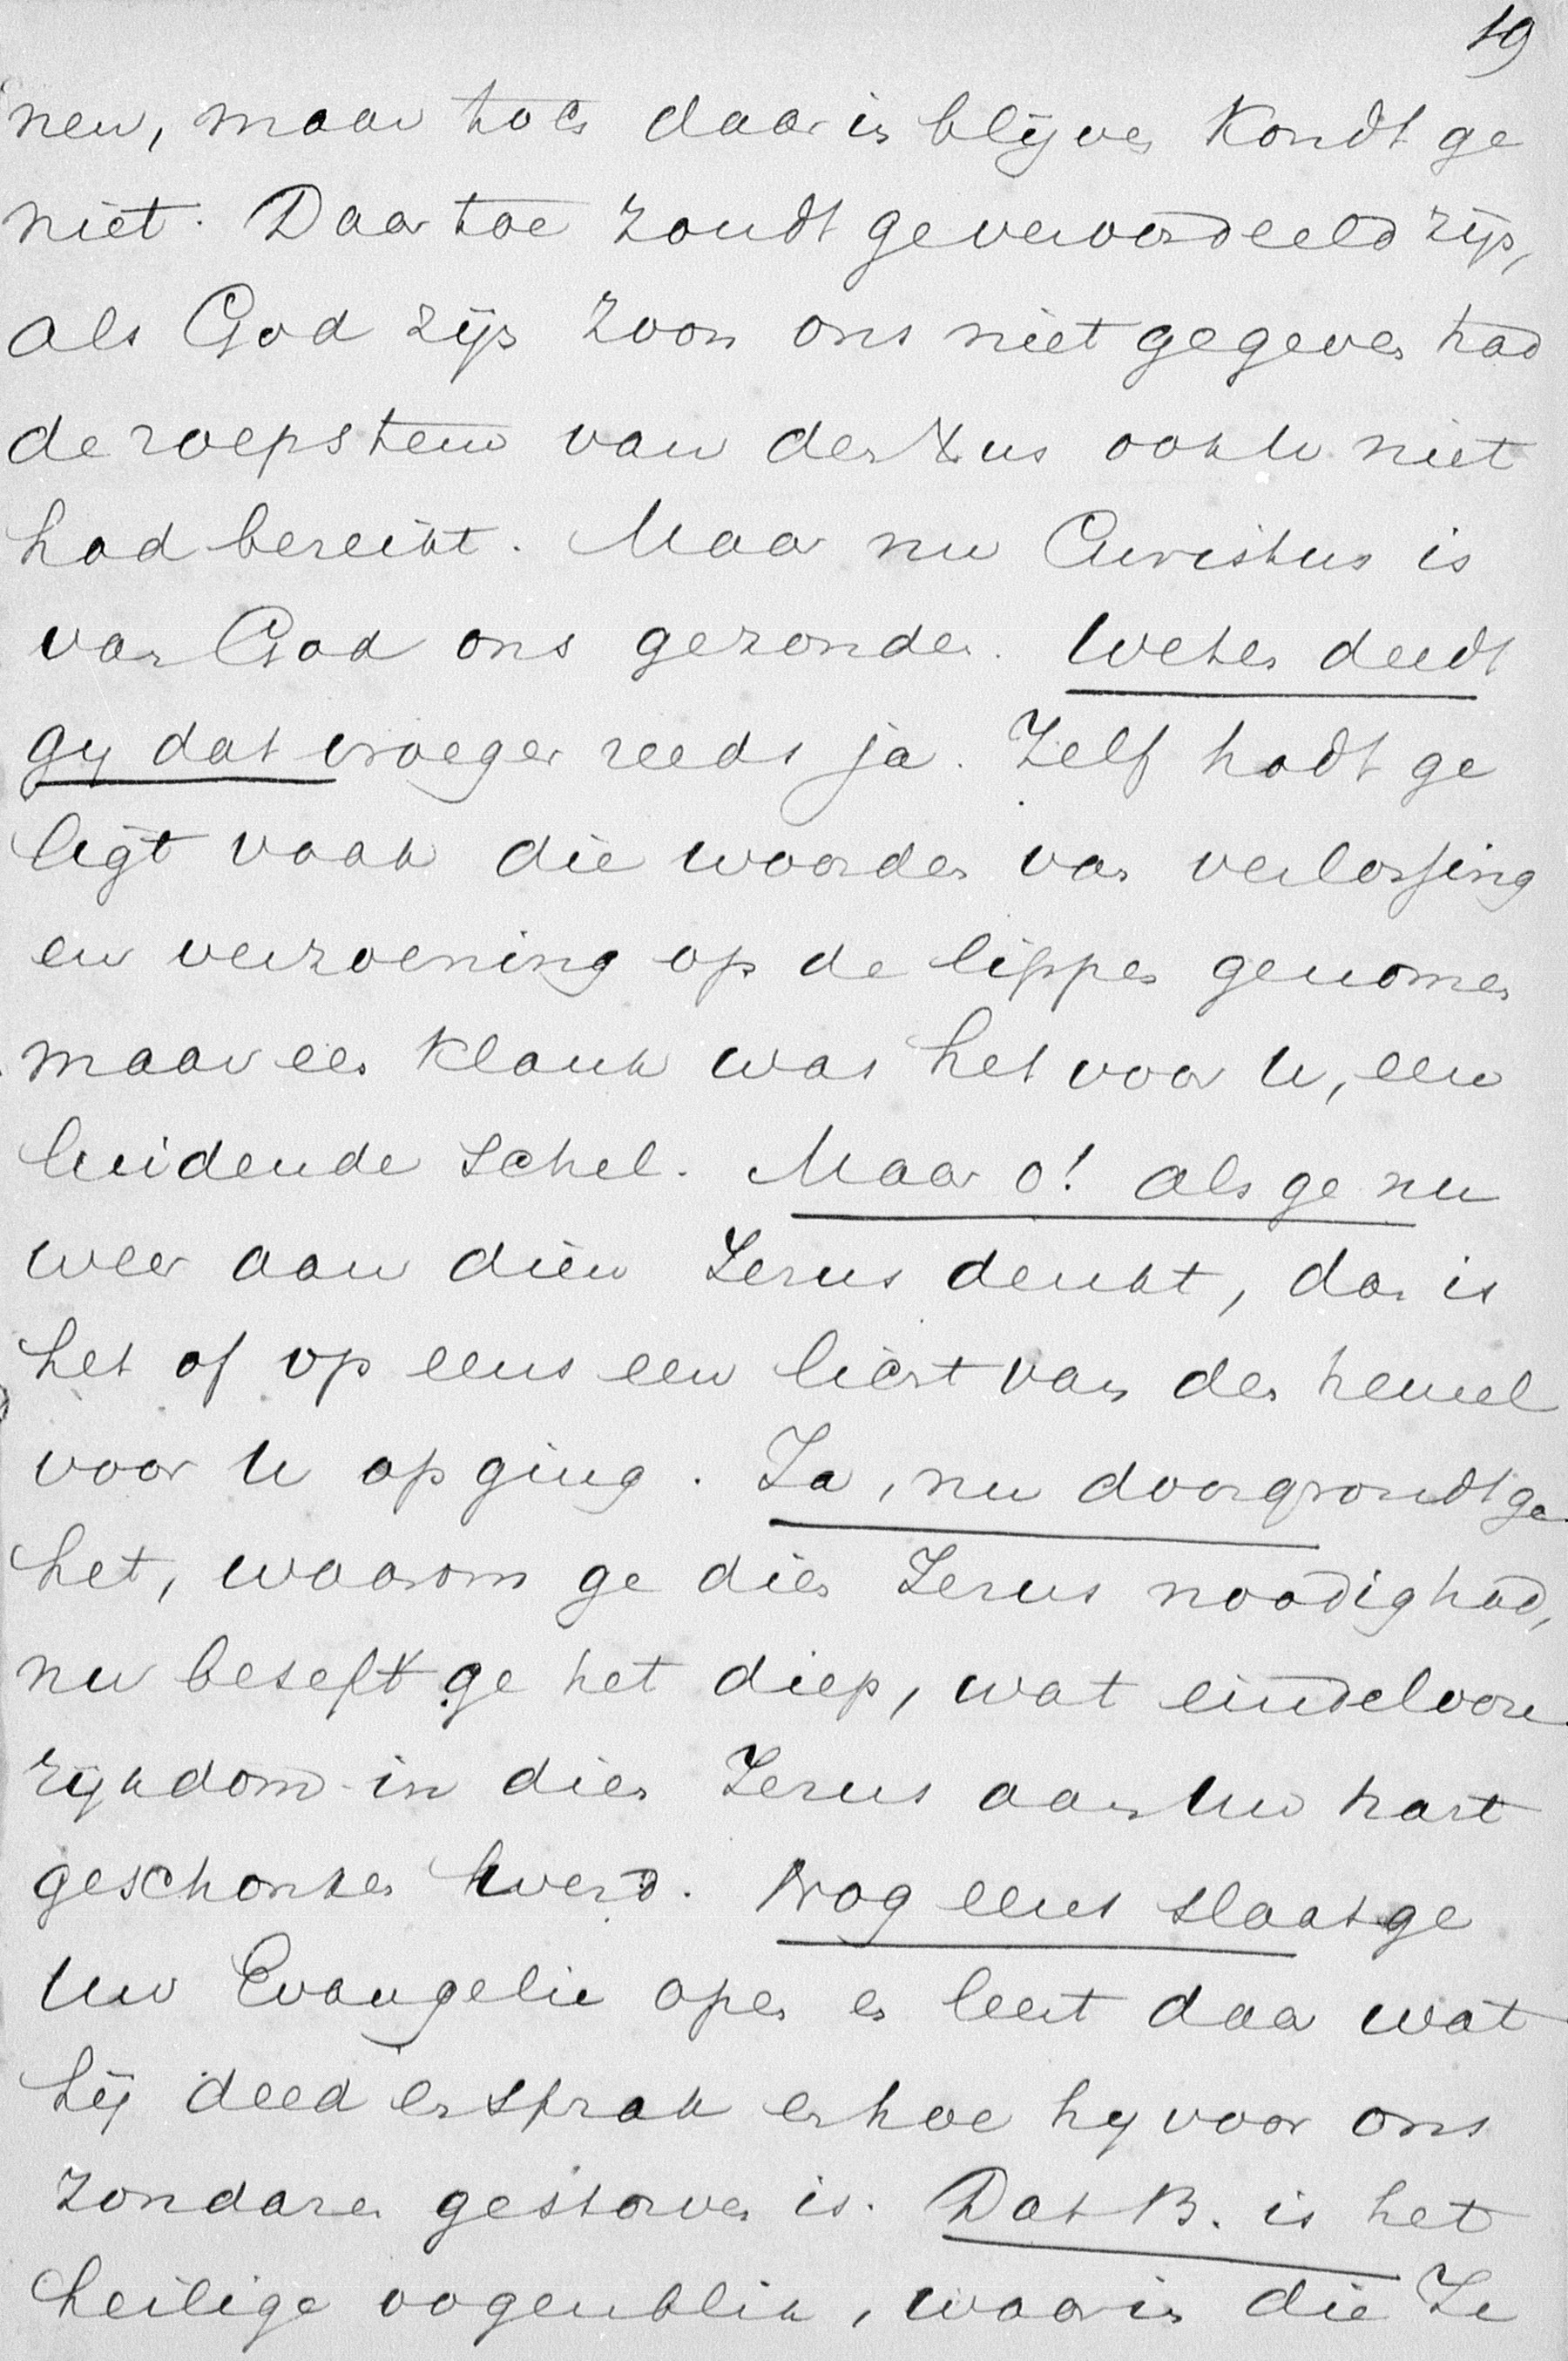 19
nen, maar toch daarin blijven kondt ge
niet. Daartoe zoudt ge veroordeeld zijn,
als God zijn Zoon ons niet gegeven had
de roepstem van den Xus ook U niet
had bereikt. Maar nu Christus is
van God ons gezonden. Weten deedt
gij dat vroeger reeds ja. Zelf hadt ge
ligt vaak die woorden van verlossing
en verzoening op de lippen genomen
maar een klank was het voor U, een
luidende schel. Maar o! als ge nu
weer aan dien Jezus denkt, dan is
het of op eens een licht van den hemel
voor U opging. Ja, nu doorgrondt ge
het, waarom ge dien Jezus noodig had,
nu beseft ge het diep, wat eindeloore
rijkdom in dien Jezus aan Uw hart
geschonken werd. Nog eens slaat ge
Uw Evangelie open en leert daar wat
hij deed en sprak en hoe hij voor ons
zondaren gestorven is. Dat B. is het
heilige oogenblik, waarin die Je